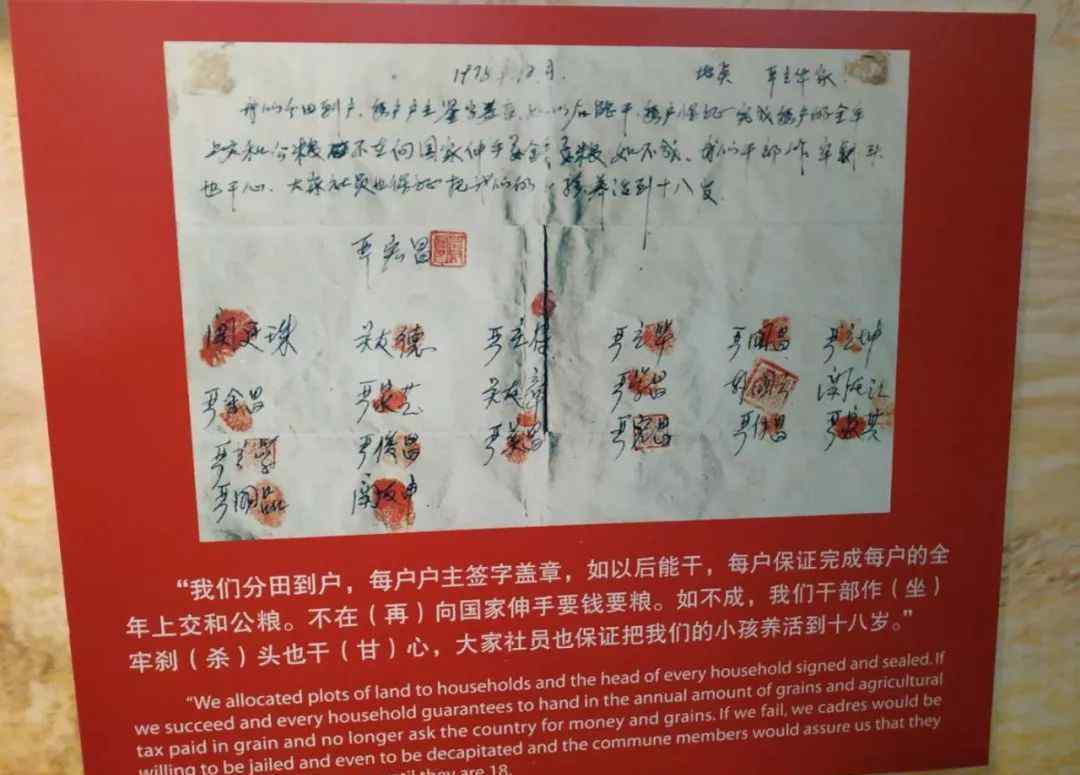 1978.12月. 地点 严立华家
我们分田到户,每户户主签字盖章,如以后能干,每户保证完成每户的全年
上交和公粮 不在向国家伸手要钱要粮,如不成,我们干部作牢刹头
也干心,大家社员也保证把我们的小孩养活到十八岁.
严宏昌
关友德 严立华 严国昌 严立坤
严金昌 严家芝 关友章 严学昌 韩国云 关友江
严立学 严俊昌 严美昌 严宏昌 严付昌 严家其
严国品 关友申
“我们分田到户,每户户主签字盖章,如以后能干,每户保证完成每户的全
年上交和公粮。不在(再)向国家伸手要钱要粮。如不成,我们干部作(坐)
牢刹(杀)头也干(甘)心,大家社员也保证把我们的小孩养活到十八岁。”
“We allocated plots of land to households and the head of every household signed and sealed. If
we succeed and every household guarantees to hand in the annual amount of grains and agricultural
tax paid in grain and no longer ask the country for money and grains. If we fail, we cadres would be
willing to be jailed and even to be decapitated and the commune members would assure us that they
until they are 18.